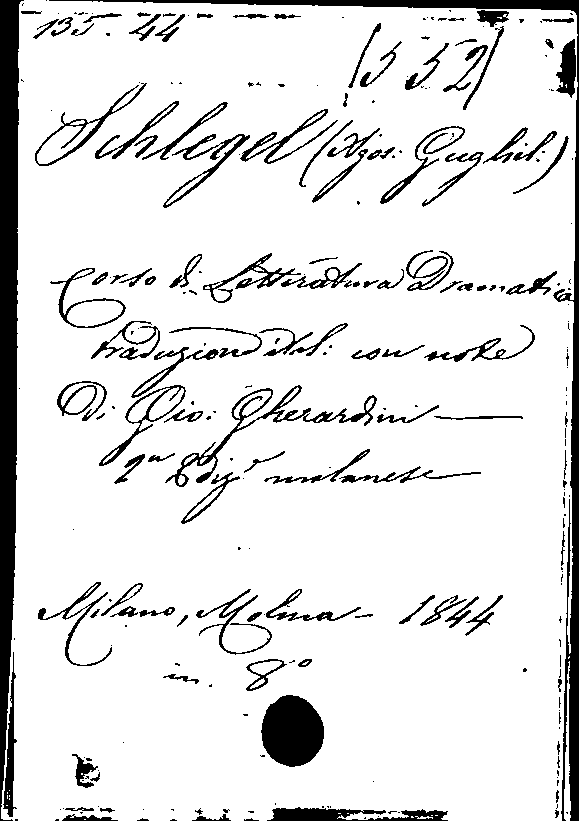 135. 44
(552)
Schlegel (Agos: Gugliel:)
Corso di Letteratura Dramatica
traduzione ital: con note
Di Gio: Gherardini —
2ª Ediz.e milanese —
Milano, Molina — 1844
in. 8º